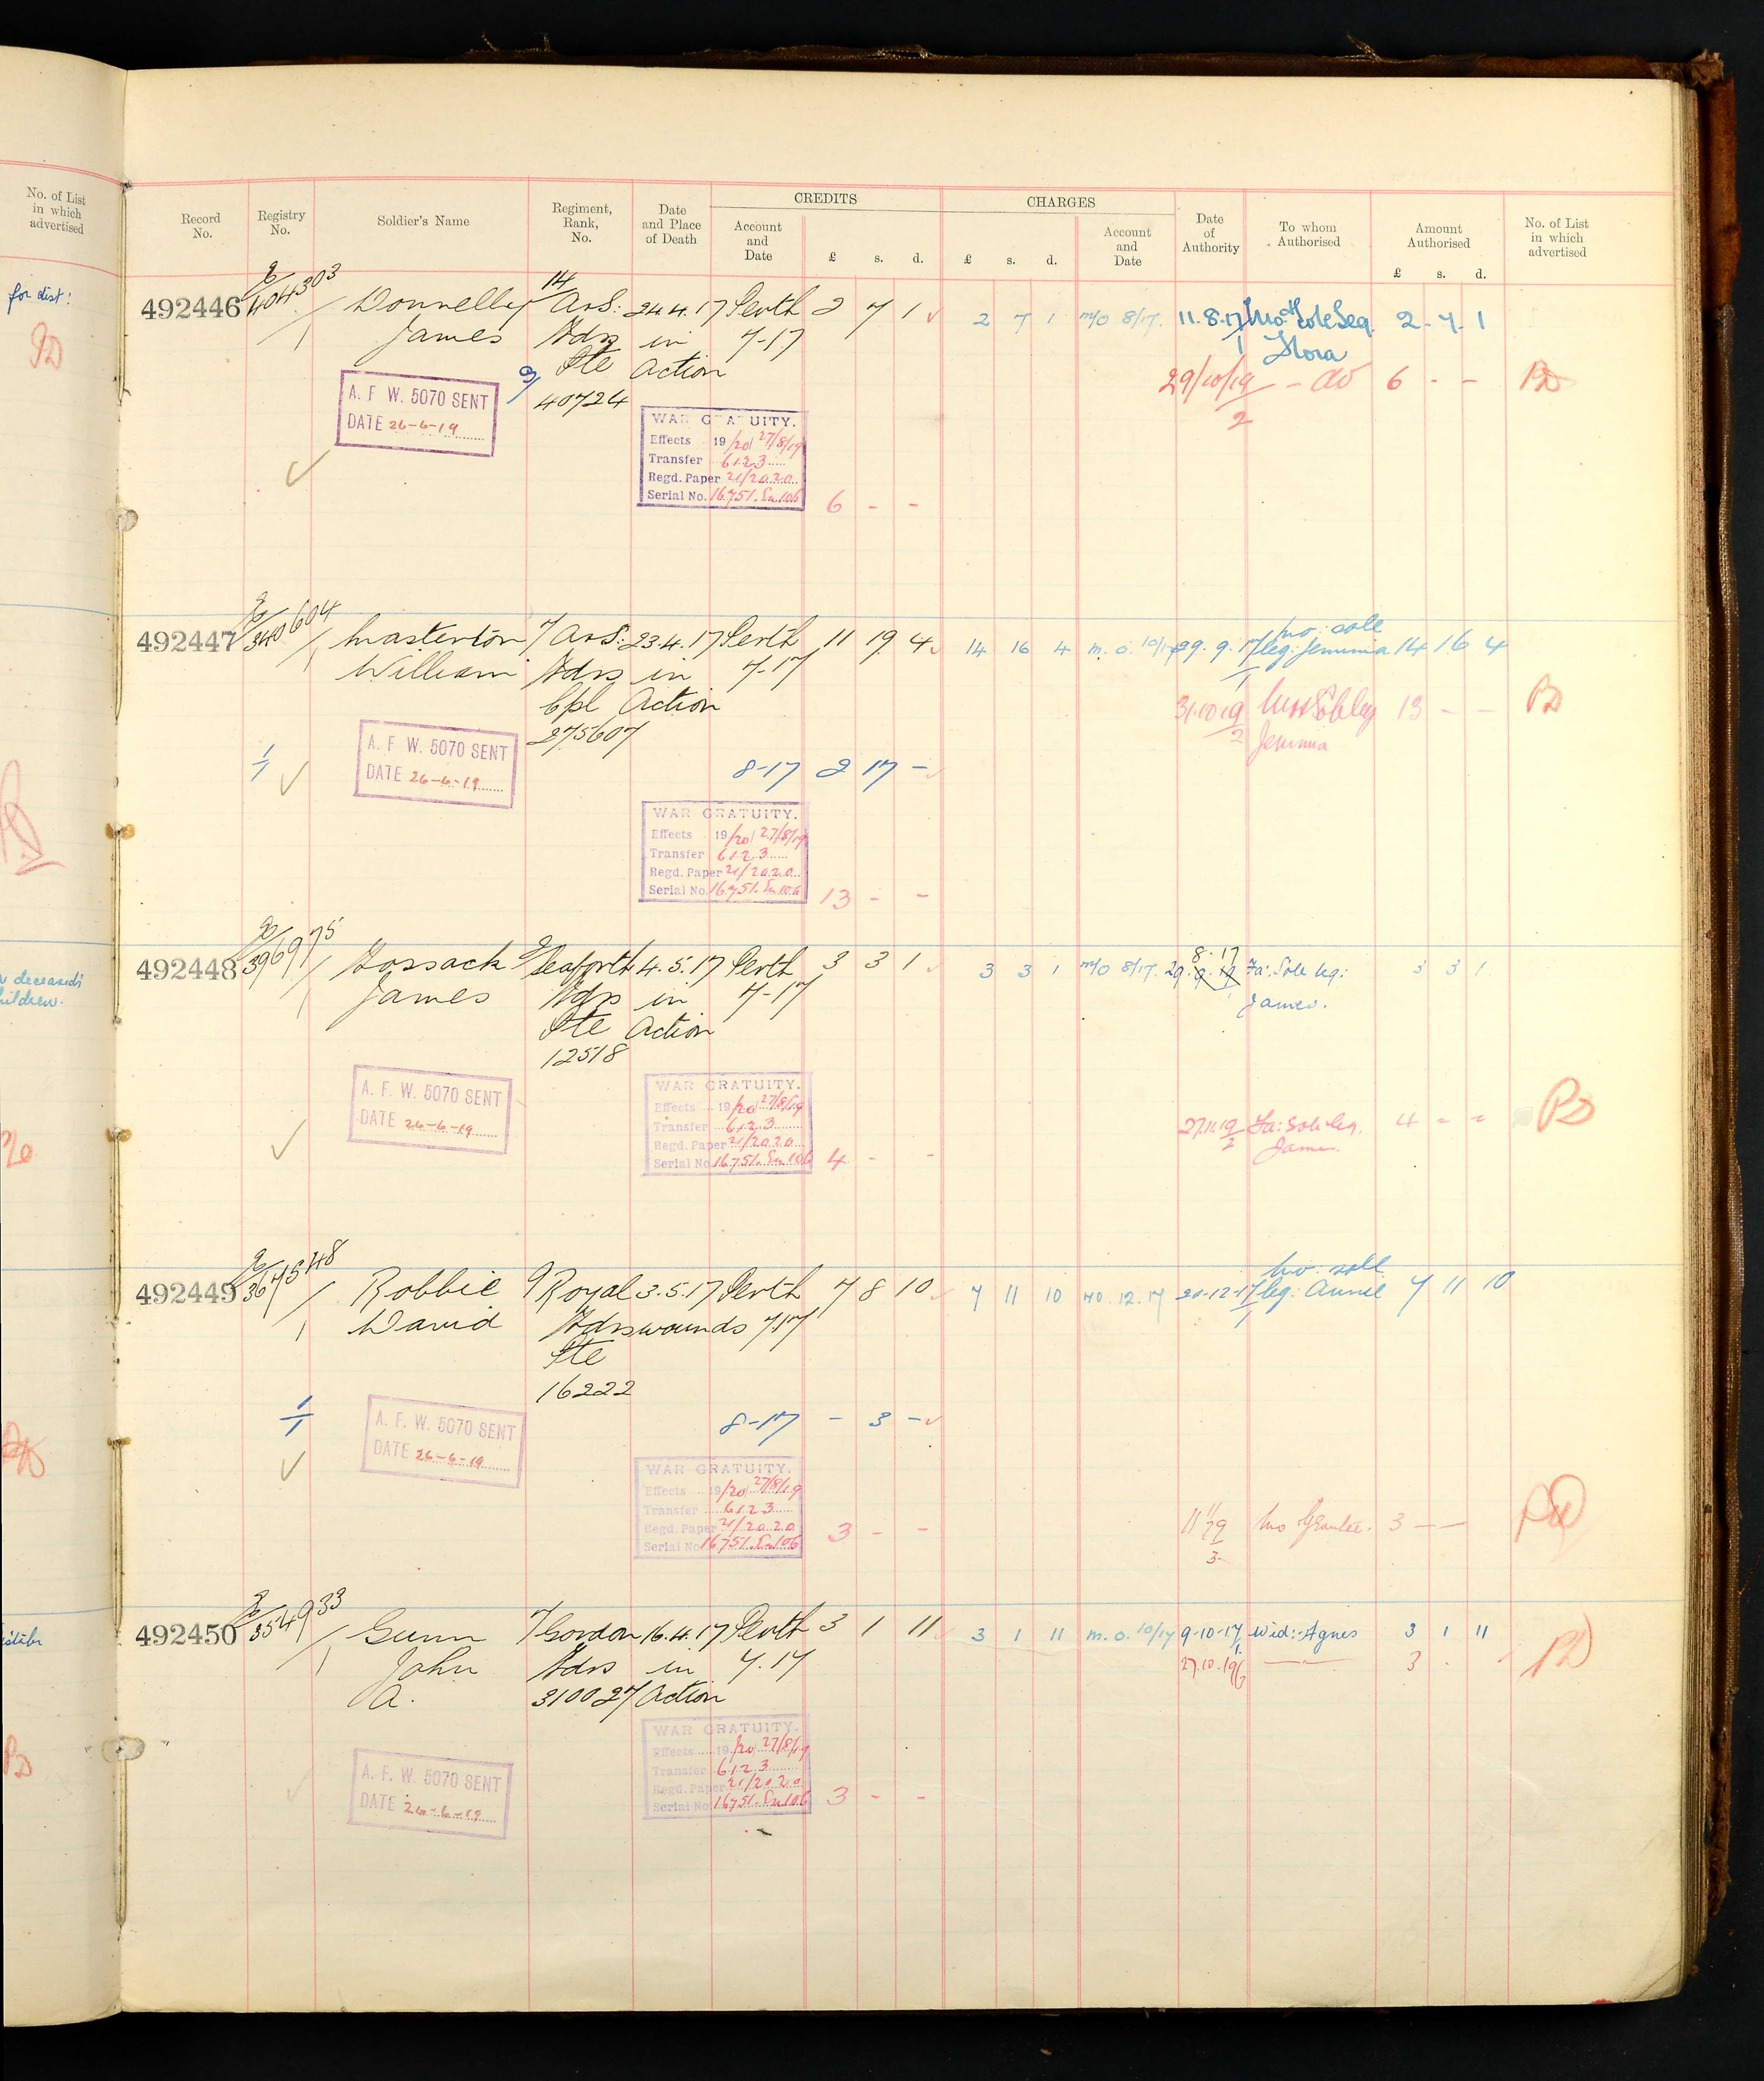 No. of List
in which
advertised
for dist:
PD
deceased's
children.
PD
Record
No.
Registry
No.
Soldier's Name
Regiment,
Rank,
No.
Date
and Place
of Death
CREDITS
Account
and
Date
£ s. d.
CHARGES
£ s. d.
Account
and
Date
Date
of
Authority
To whom
Authorised
Amount
Authorised
£ s. d.
No. of List
in which
advertised
492446 404303/1 Donnelly 14 A&S: 24.4.17 Perth 2 7 1 2 7 1 M/O 8/17. 11.8.17 Mo & sole Leg. 2 . 7 . 1
James Hdrs in 7-17 1 Flora
Pte Action 29/10/19 - do 6 - - PD
9/ 40724 2
A. F. W. 5070 SENT
DATE 26-6-19
WAR GRATUITY.
Effects 19/20 27/8/19
Transfer 6123
Regd. Paper 21/2020
Serial No. 16751. Su 106 6 - -
492447 340604/1 Masterton 7 A&S: 23.4.17 Perth 11 19 4 14 16 4 m. o. 10/17 29. 9. 17 mo: sole
leg: Jemima 14 16 4
William Hdrs in 7-17 1
Cpl Action 31.10.19 13 - - PD
275607 2 Jemima
A. F. W. 5070 SENT
DATE 26-6-19
1/1 8-17 2 17 -
WAR GRATUITY.
Effects 19/20 27/8/19
Transfer 6123
Regd. Paper 21/2020
Serial No. 16751. Su 106 13 - -
492448 396975/1 Hossack 9 Seaforth 4.5.17 Perth 3 3 1 3 3 1 M/O 8/17. 29. 8.17 Fa: Sole leg: 3 3 1
James Hdrs in 7-17 James.
Pte Action
12518
A. F. W. 5070 SENT
DATE 26-6-19
WAR GRATUITY.
Effects 19/20 27/8/19
Transfer 6123
Regd. Paper 21/2020
Serial No. 16751. Su 106 4 - -
27.11.19/2 Fa: Sole leg. 4 - - PD
James.
492449 367548/1 Robbie 9 Royal 3.5.17 Perth 7 8 10 7 11 10 MO. 12. 17 20-12-17 mo: sole
leg: Annie 7 11 10
David Hdrs wounds 7.17 1
Pte
16222
1/1 8-17 - 3 -
A. F. W. 5070 SENT
DATE 26-6-19
WAR GRATUITY.
Effects 19/20 27/8/19
Transfer 6123
Regd. Paper 21/2020
Serial No. 16751. Su 106 3 - -
11 11/19 Mo Grantee. 3 — —
3
492450 354933/1 Gunn 7 Gordon 16.4.17 Perth 3 1 11 3 1 11 m. o. 10/17 9-10-17 Wid:- Agnes 3 1 11
John Hdrs in 7.17 27.10.19 — 3 . . PD
A. 310027 Action
A. F. W. 5070 SENT
DATE 26-6-19
WAR GRATUITY.
Effects 19/20 27/8/19
Transfer 6123
Regd. Paper 21/2020
Serial No. 16751. Su 106 3 - -